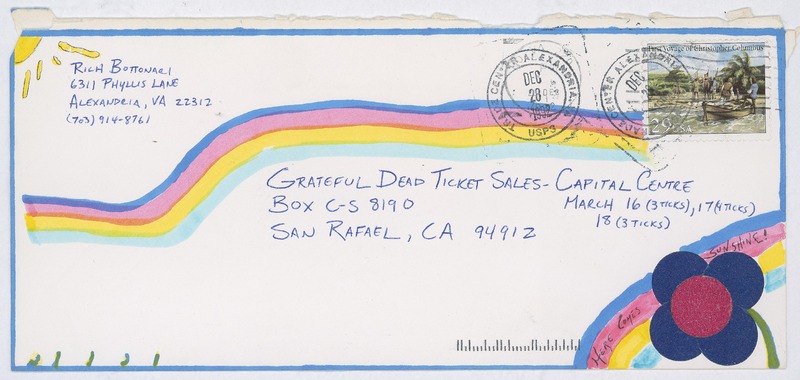 Rich Bottonari
6311 Phyllis Lane
Alexandria, VA 22312
(703) 914-8761
TRADE CENTER ALEXANDRIA, VA
DEC
28
1992
USPS
First Voyage of Christopher Columbus
29 USA
Grateful Dead Ticket Sales - Capital Centre
Box C-S 8190
March 16 (3 ticks), 17 (4 ticks)
18 (3 ticks)
San Rafael, CA 94912
Here Comes
Sunshine!